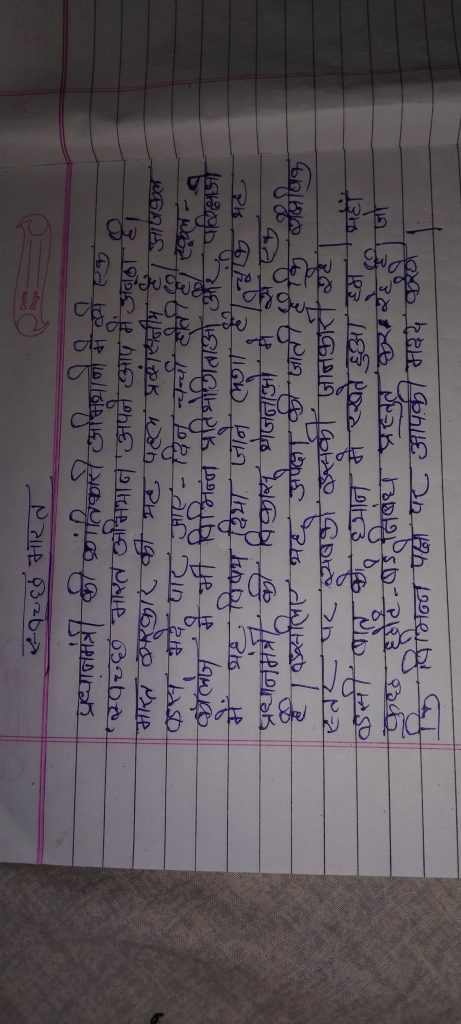 Date
Page
स्वच्छ भारत
प्रधानमंत्री की क्रांतिकारी अभियानों में से एक
स्वच्छ भारत अभियान अपने आप में अनूठा है।
भारत सरकार की यह पहल प्रशंसनीय है। आजकल
इस मुद्दे पर आए-दिन चर्चा होती है। स्कूल-
कॉलेज में भी विभिन्न प्रतियोगिताओं और परीक्षाओं
में यह विषय दिया जाने लगा है। चूंकि यह
प्रधानमंत्री की विकास योजनाओं में से एक है
है। इसलिए यह अपेक्षा की जाती है कि वैश्विक
स्तर पर सबको इसकी जानकारी रहे।
इसी बात को ध्यान में रखते हुआ हम यहाँ
कुछ छोटे-बड़े निबंध प्रस्तुत कर रहे है। जो
कि विभिन्न पक्षो पर आपकी मदद करेंगे।